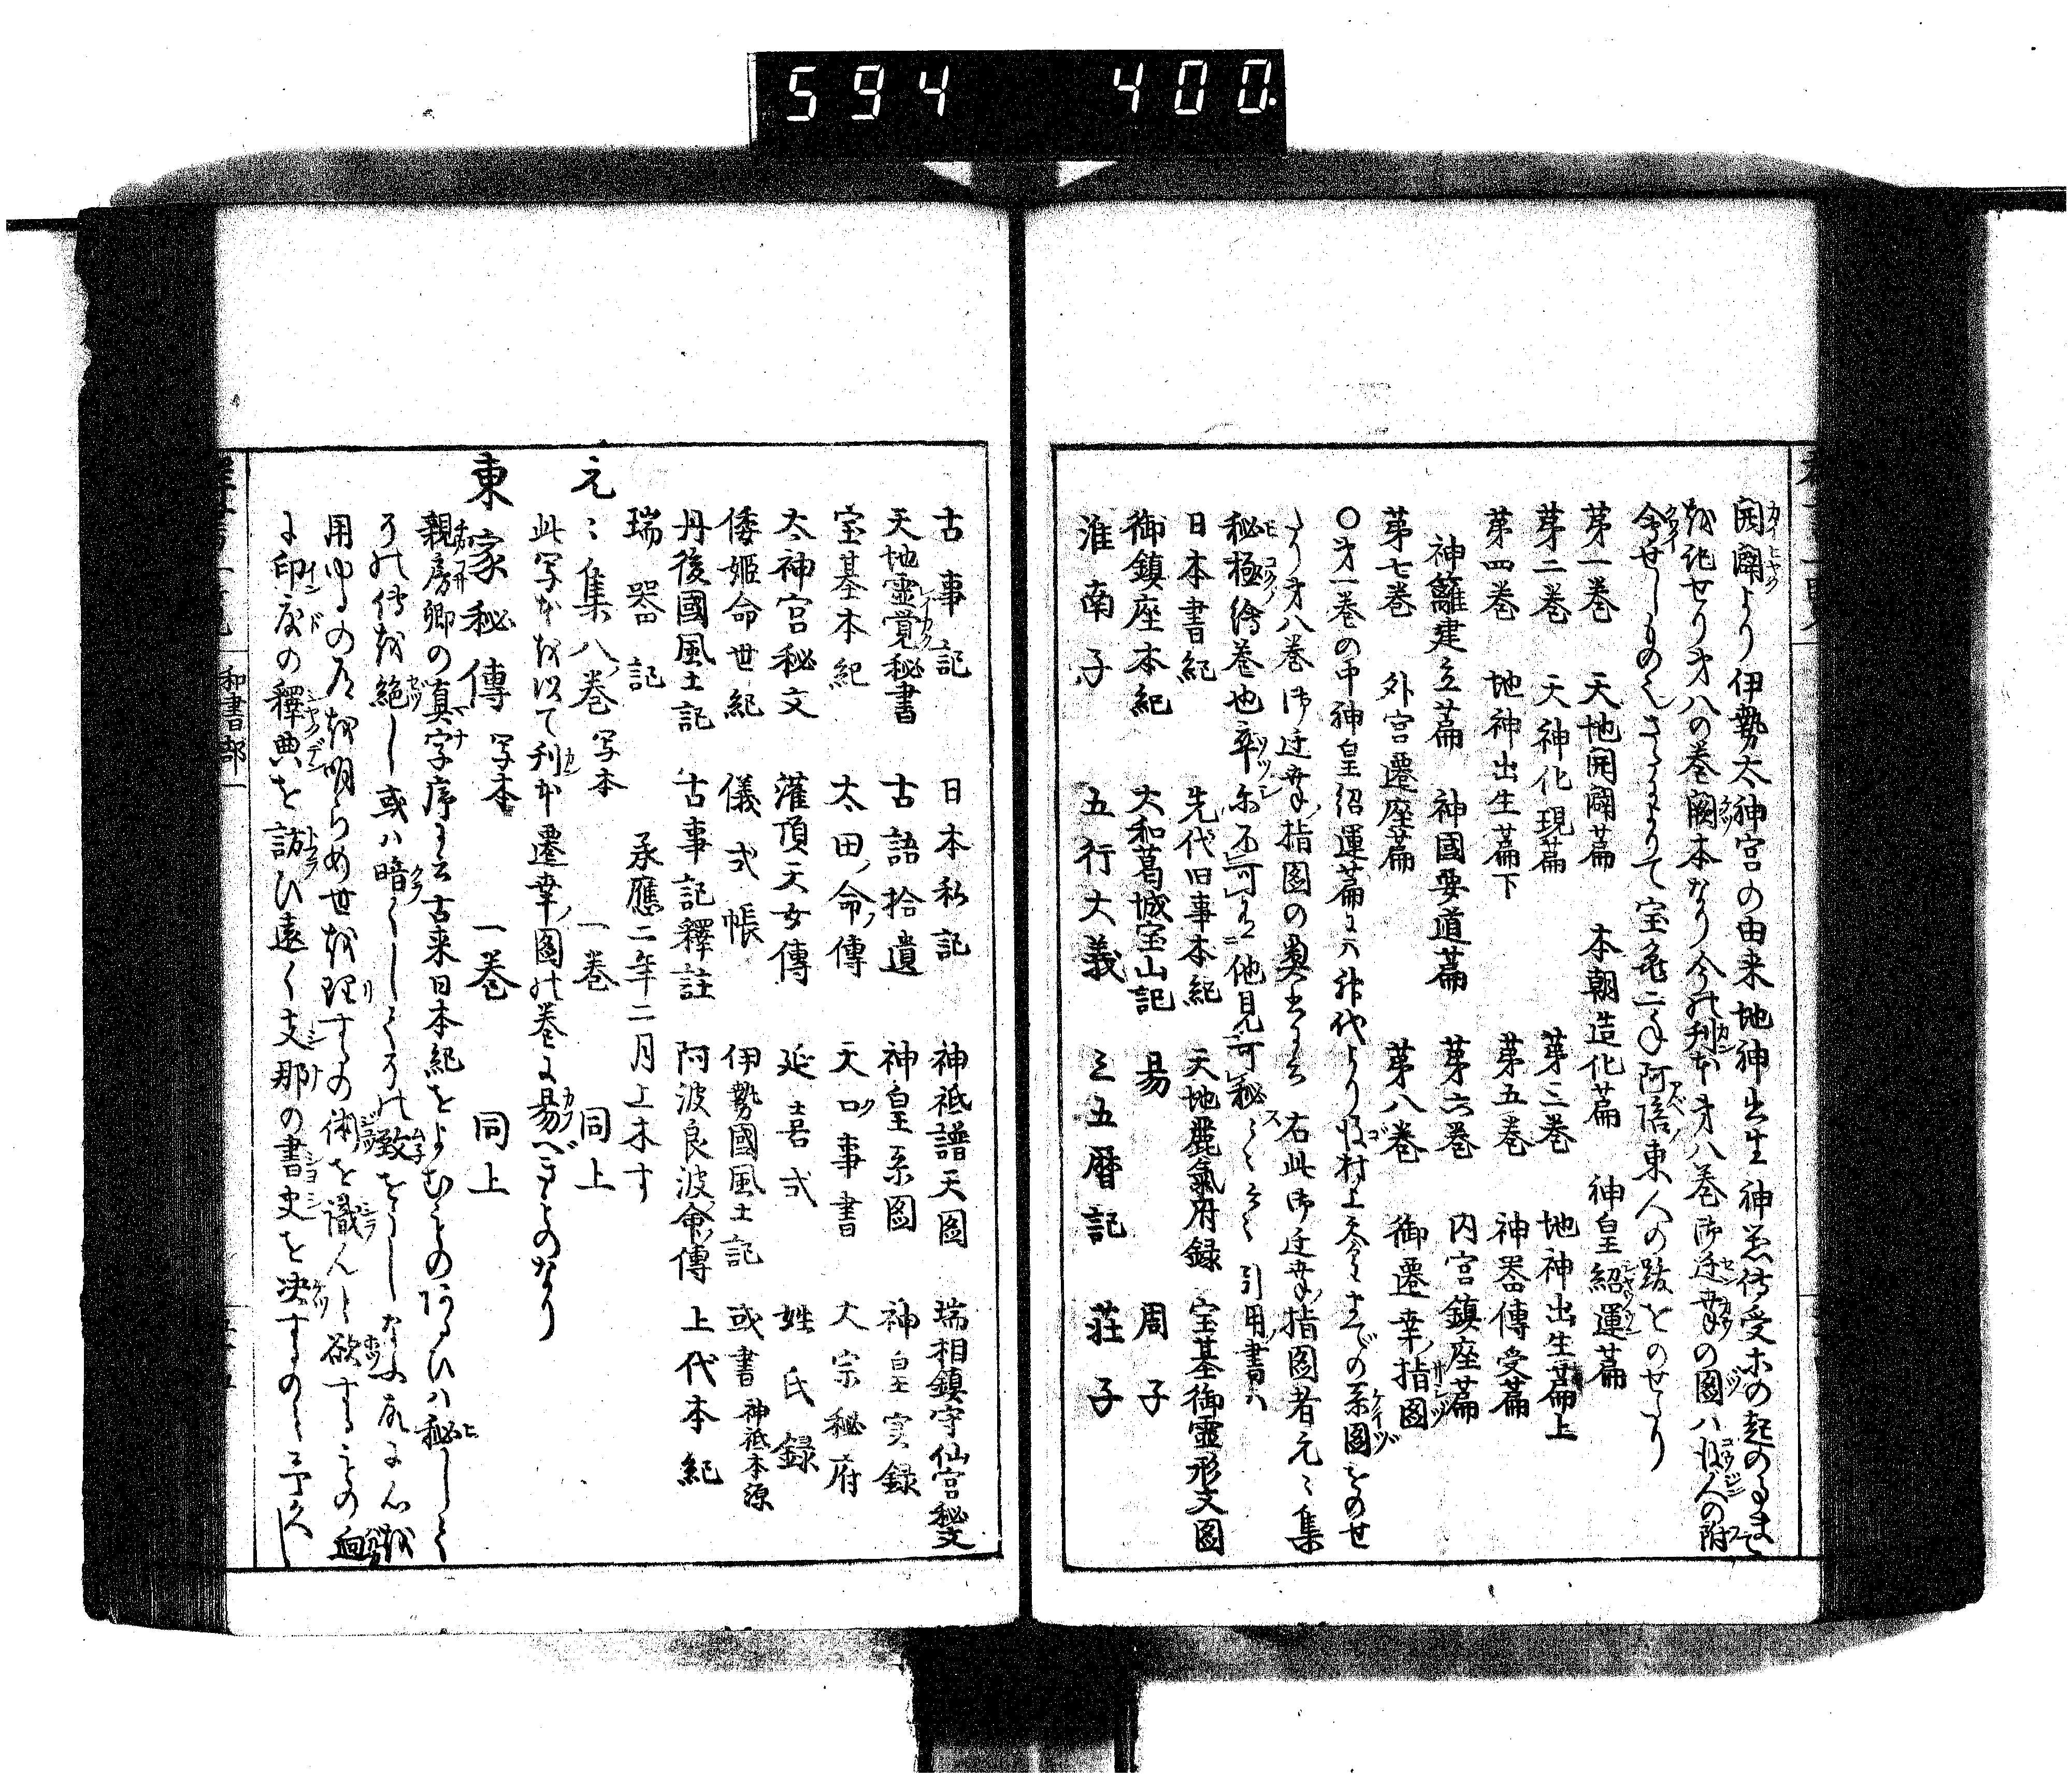 594 400
開闢より伊勢太神宮の由来地神出生神器傳受ホの起のるまで
を記せり才八の巻闕本なり今の刊本才八巻御迁幸の圖ハ後人の附
會せしものなりさるによりて宝亀二年阿倍東人の跋をのせたり
苐一巻 天地開闢萹 本朝造化萹 神皇紹運萹
苐二巻 天神化現萹 苐三巻 地神出生萹上
苐四巻 地神出生萹下 苐五巻 神器傳受萹
神籬建立萹 神國要道萹 苐六巻 内宮鎮座萹
苐七巻 外宮遷座萹 苐八巻 御遷幸ノ指圖
〇才一巻の中神皇紹運萹に六神代より後村上天皇までの系圖をのせ
たり才八巻御迁幸ノ指圖の奥書に云 右此御迁幸ノ指圖者元〻集
秘極繪巻也率尓不可有他見可秘〻〻云〻 引用ノ書ハ
日本書紀 先代旧事本紀 天地麗氣府録 宝基御靈形文圖
御鎮座本紀 大和葛城宝山記 易 周子
淮南子 五行大義 三五暦記 荘子
古事記 日本私記 神祇譜天圖 瑞相鎮守仙宮秘文
天地霊覚秘書 古語拾遺 神皇系圖 神皇実録
宝基本紀 太田ノ命ノ傳 天口事書 大宗秘府
太神宮秘文 灌頂天女傳 延喜式 姓氏録
倭姫命世紀 儀式帳 伊勢國風土記 或書 神祇本源
丹後國風土記 古事記釋註 阿波良波命ノ傳 上代本紀
瑞器記 承應二年二月上木す
元〻集八巻 写本 一巻 同上
此写本を以て刊本遷幸ノ圖の巻に易べきものなり
東家秘傳 写本 一巻 同上
親房卿の真字序に云古来日本紀をよむものあるひハ秘しと
その傳を絶し或ハ暗くしてその致をうしなふ故に心を
用ゆるの道を明らめ世を理するの術を識んと欲するもの
に印度の釋典を訪ひ遠く支那の書史を决するのミ予久し
和書部一